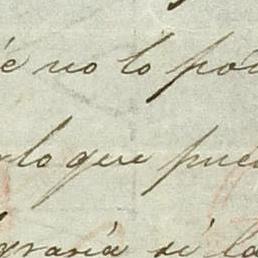 é no lo pod
rlo que pued
graria si la